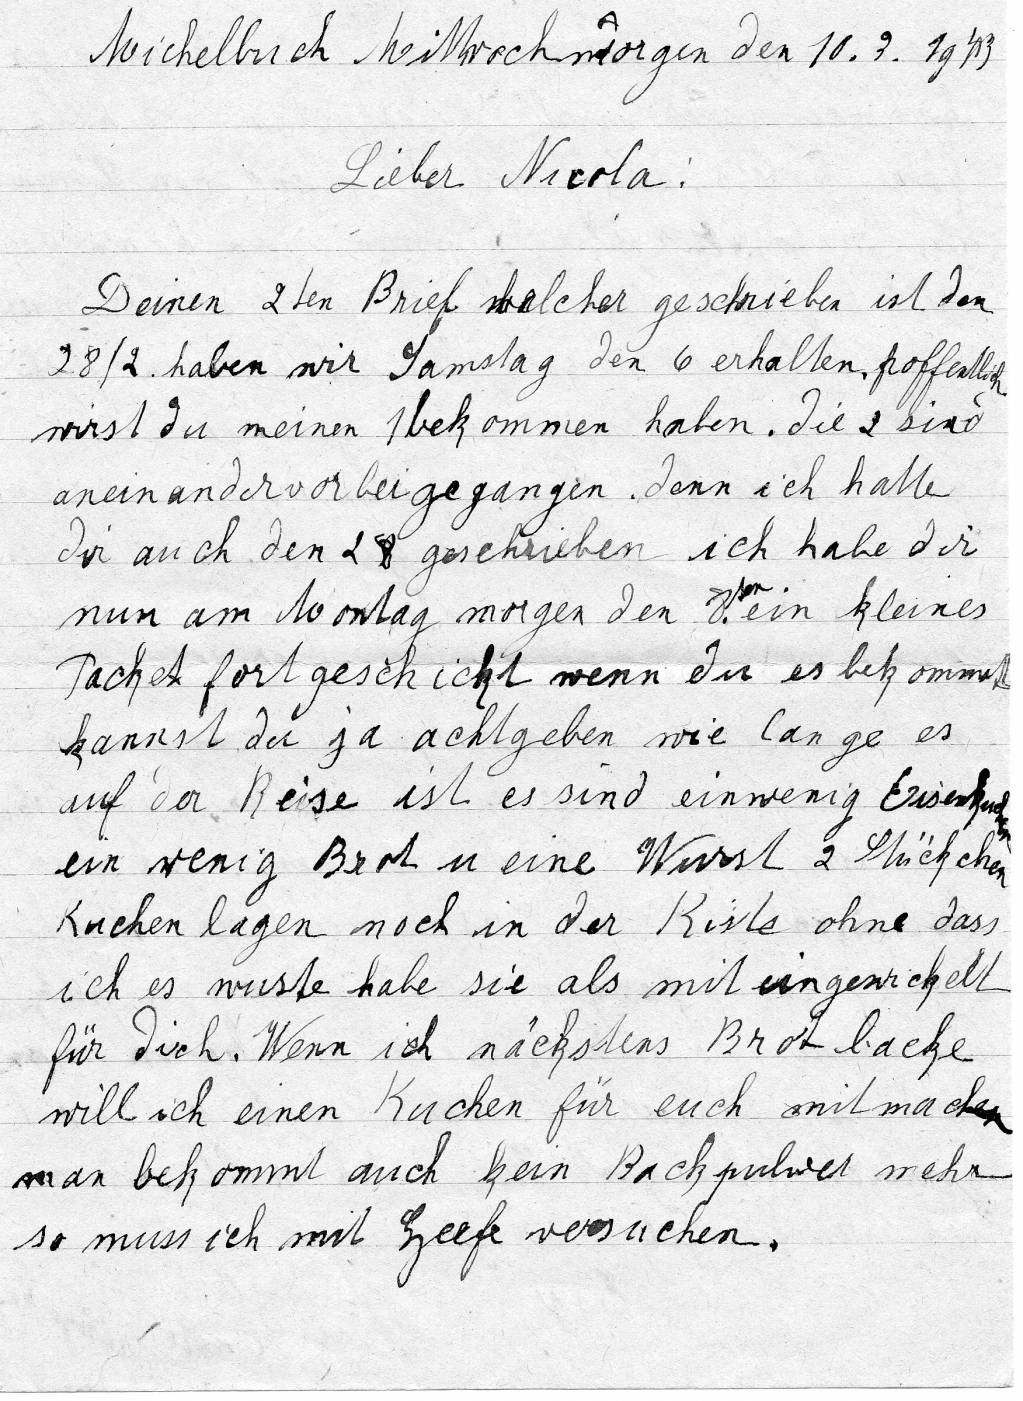 Michelbuch Mittwochmorgen den 10. 3. 1943
Lieber Nicola:
Deinen 2ten Brief welcher geschrieben ist den
28/2. haben wir Samstag den 6 erhalten. hoffentlich
wirst du meinen 1 bekommen haben. die 2 sind
aneinandervorbeigegangen. denn ich hatte
dir auch den 28 geschrieben ich habe dir
nun am Montag morgen den 8.ten ein kleines
Packet fortgeschickt wenn du es bekommst
kannst du ja achtgeben wie lange es
auf der Reise ist es sind einwenig Eisenkuchen
ein wenig Brot u eine Wurst 2 Stückchen
Kuchen lagen noch in der Kiste ohne dass
ich es wuste habe sie als mit eingewickelt
für dich. Wenn ich nächstens Brot backe
will ich einen Kuchen für euch mitmachen
man bekommt auch kein Backpulwer mehr
so muss ich mit Heefe versuchen.